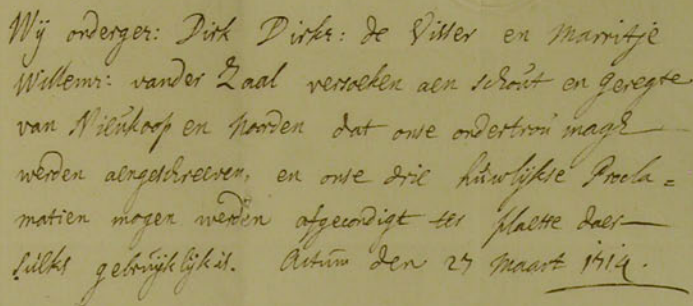 Wij onderget: Dirk Dirks: de Visser en Marritje
Willems: vander Zaal versoeken aen schout en geregte
van Nieukoop en Noorden dat onse ondertrou magh
werden aengeschreeven, en onse drie huwlijkse Procla=
matien mogen werden afgecondigt ter plaetse daer
sulks gebruijklijk is. Actum den 27 maart 1714.